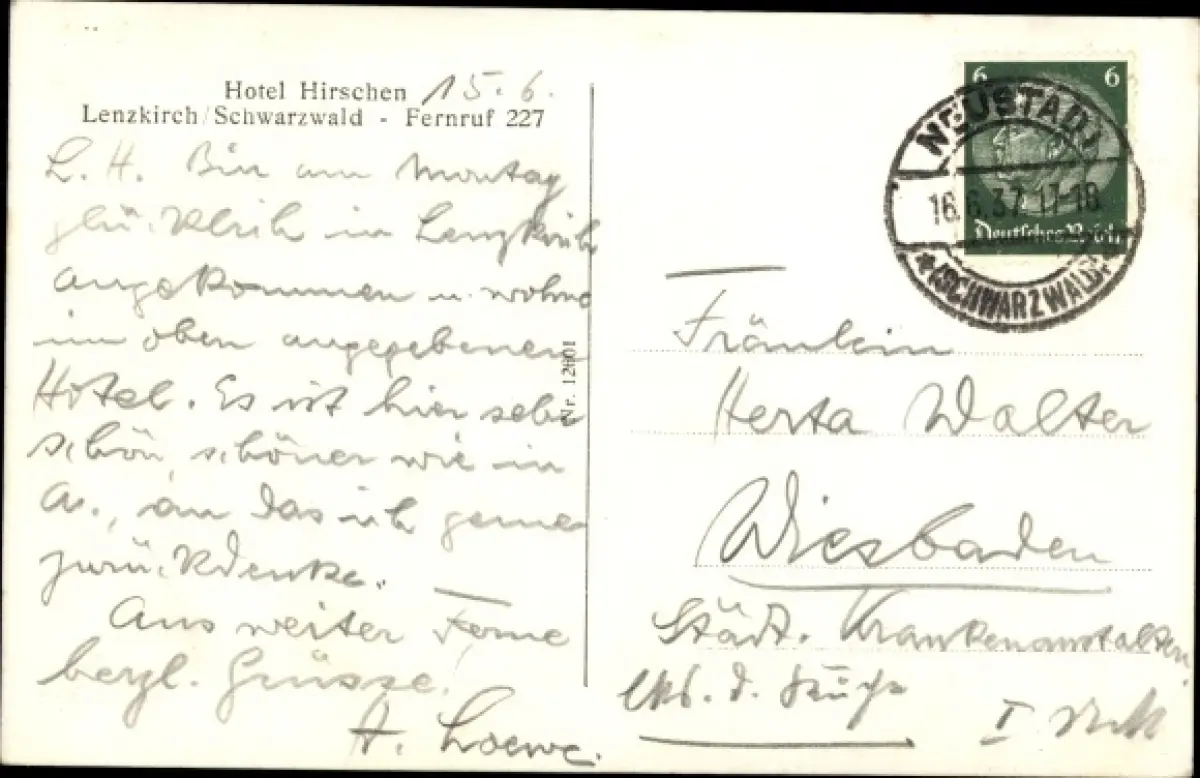 Hotel Hirschen 15.6.
Lenzkirch/Schwarzwald - Fernruf 227
L. H. Bin am Montag
glücklich in Lenzkirch
angekommen u. wohne
im oben angegebenen
Hotel. Es ist hier sehr
schön, schöner wie in
A., an das ich gerne
zurückdenke.
Aus weiter Ferne
herzl. Grüsse.
A. Loewe.
Nr. 12001
6 6
Deutsches Reich
NEUSTADT
16.6.37. 17-18
*(SCHWARZWALD)*
Fräulein
Herta Walter
Wiesbaden
Städt. Krankenanstalten
d.
I